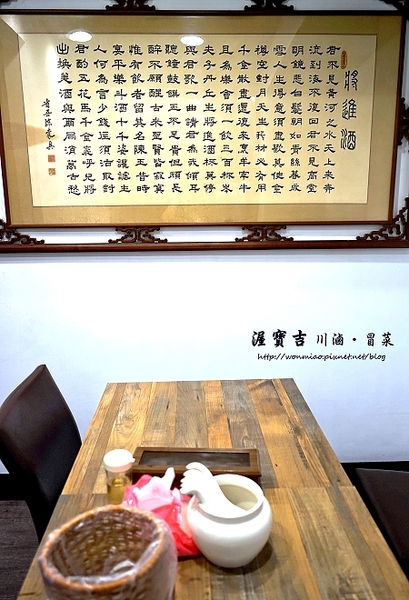 將進酒
君不見黃河之水天上來奔
流到海不復回君不見高堂
明鏡悲白髮朝如青絲暮成
雪人生得意須盡歡莫使金
樽空對月天生我材必有用
千金散盡還復來烹羊宰牛
且為樂會須一飲三百杯岑
夫子丹丘生將進酒杯莫停
與君歌一曲請君為我傾耳
聽鐘鼓饌玉不足貴但願長
醉不願醒古來聖賢皆寂寞
惟有飲者留其名陳王昔時
宴平樂斗酒十千恣讙謔主
人何為言少錢徑須沽取對
君酌五花馬千金裘呼兒將
出換美酒與爾同消萬古愁
渥寶吉 川滷·冒菜
http://wonmiao.pixnet.net/blog